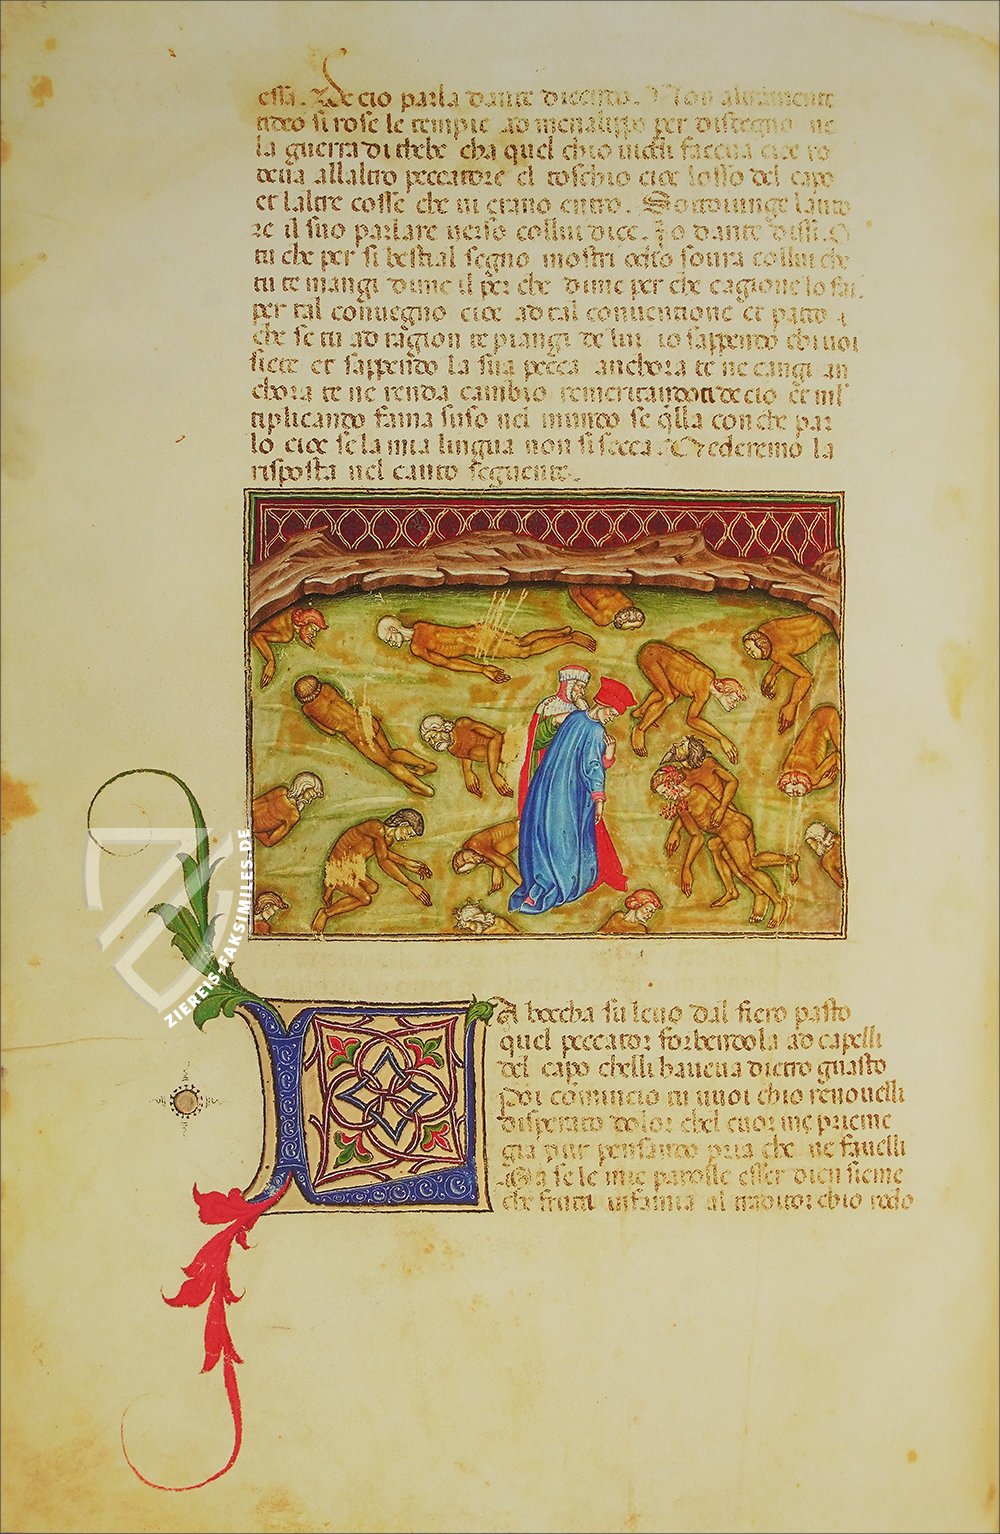 essa. De cio parla dante dicendo. Non altrimente
tideo si rose le tempie ad menalippo per disdegno ne
la guerra di thebe cha quel chio viddi faceua cioe ro
deua allaltro peccatore el teschio cioe losso del capo
et laltre cosse che vi erano entro. Sottoiunge lauto
re il suo parlare uerso collui dice. Io dante dissi. O
tu che per si bestial segno mostri odio soura collui che
tu te mangi dime il per che dime per che cagione lo fai.
per tal conuegno cioe ad tal conuentione et patto
che se tu ad ragion te piangi de lui io sappendo chi uoi
siete et sappendo la sua pecca anchora te ne cangi an
chora te ne renda cambio remeritandoti de cio et ml
tiplicando fama suso nel mundo se qlla con che par
lo cioe se la mia lingua non si secca. Et ederemo la
risposta nel canto seguente.
LA boccha su leuo dal fiero pasto
quel peccator forbendola ad capelli
del capo chelli haueua dietro guasto
Poi comincio tu vuoi chio renouelli
disperato dolor chel cuor me prieme
gia pur pensando pria che ne fauelli
Ma se le mie parolle esser dien sieme
che frutti infamia al traditor chio rodo
ZIEREIS-FAKSIMILES.DE